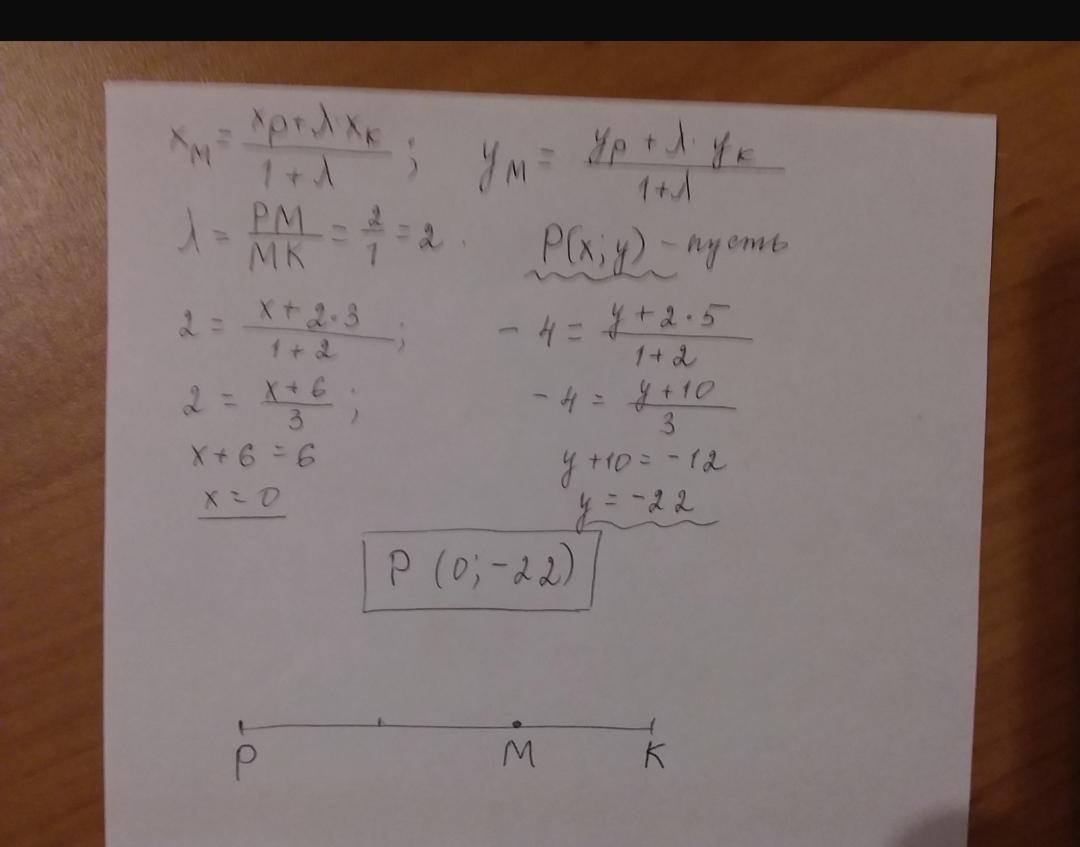 x_M = (x_P + λ·x_K)/(1 + λ) ; y_M = (y_P + λ·y_K)/(1+λ)
λ = PM/MK = 2/1 = 2 . P(x; y) – пусть
2 = (x + 2·3)/(1 + 2) ; - 4 = (y + 2·5)/(1+2)
2 = (x+6)/3 ; - 4 = (y+10)/3
x+6 = 6 y+10 = -12
x = 0 y = -22
P (0; -22)
P M K